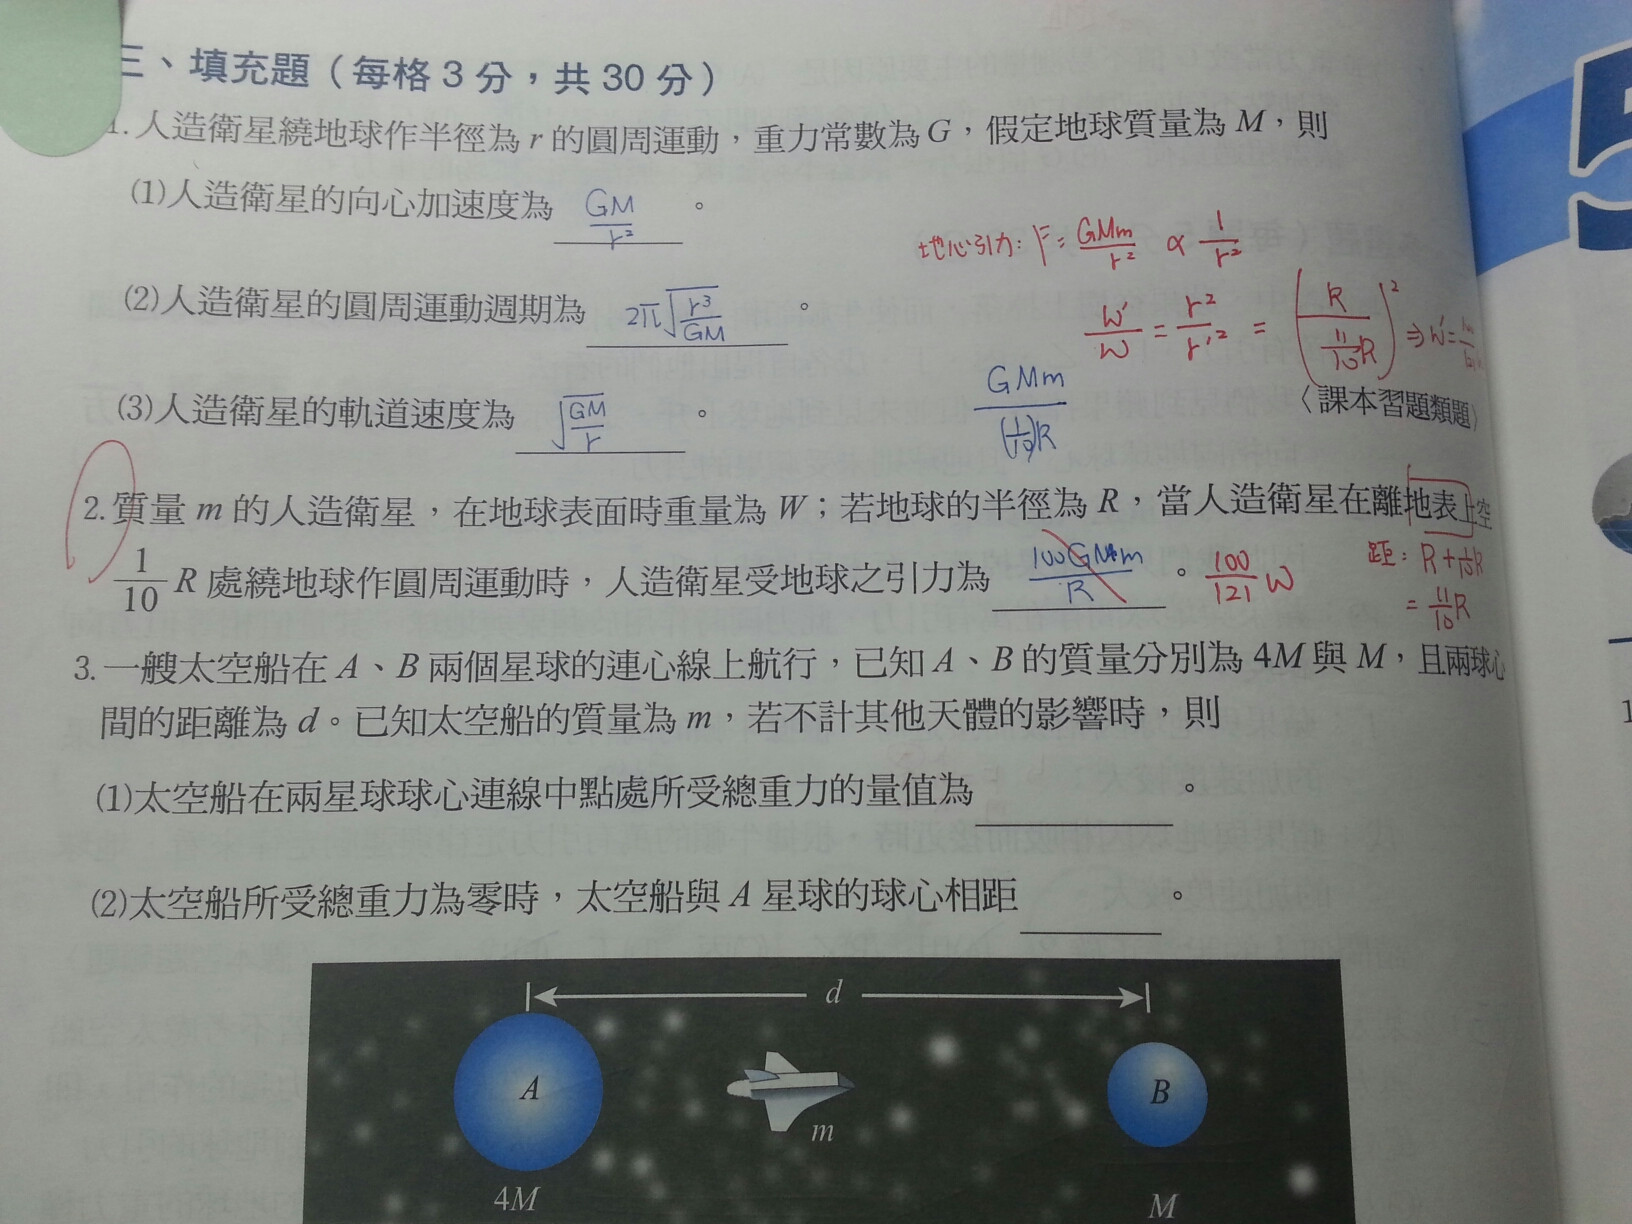 三、填充題(每格3分,共30分)
1.人造衛星繞地球作半徑為 r 的圓周運動,重力常數為 G,假定地球質量為 M,則
(1)人造衛星的向心加速度為 GM/r² 。
地心引力: F = GMm/r² ∝ 1/r²
(2)人造衛星的圓周運動週期為 2π√(r³/GM) 。
W'/W = r²/r'² = (R/(11/10 R))² ⇒ W' =
(3)人造衛星的軌道速度為 √(GM/r) 。
GMm/(1/10)R
〈課本習題類題〉
2.質量 m 的人造衛星,在地球表面時重量為 W;若地球的半徑為 R,當人造衛星在離地表上空
1/10 R 處繞地球作圓周運動時,人造衛星受地球之引力為 100GMm/R 。 100/121 W
距: R + 1/10 R
= 11/10 R
3.一艘太空船在 A、B 兩個星球的連心線上航行,已知 A、B 的質量分別為 4M 與 M,且兩球心
間的距離為 d。已知太空船的質量為 m,若不計其他天體的影響時,則
(1)太空船在兩星球球心連線中點處所受總重力的量值為 。
(2)太空船所受總重力為零時,太空船與 A 星球的球心相距 。
d
A
B
m
4M
M
5